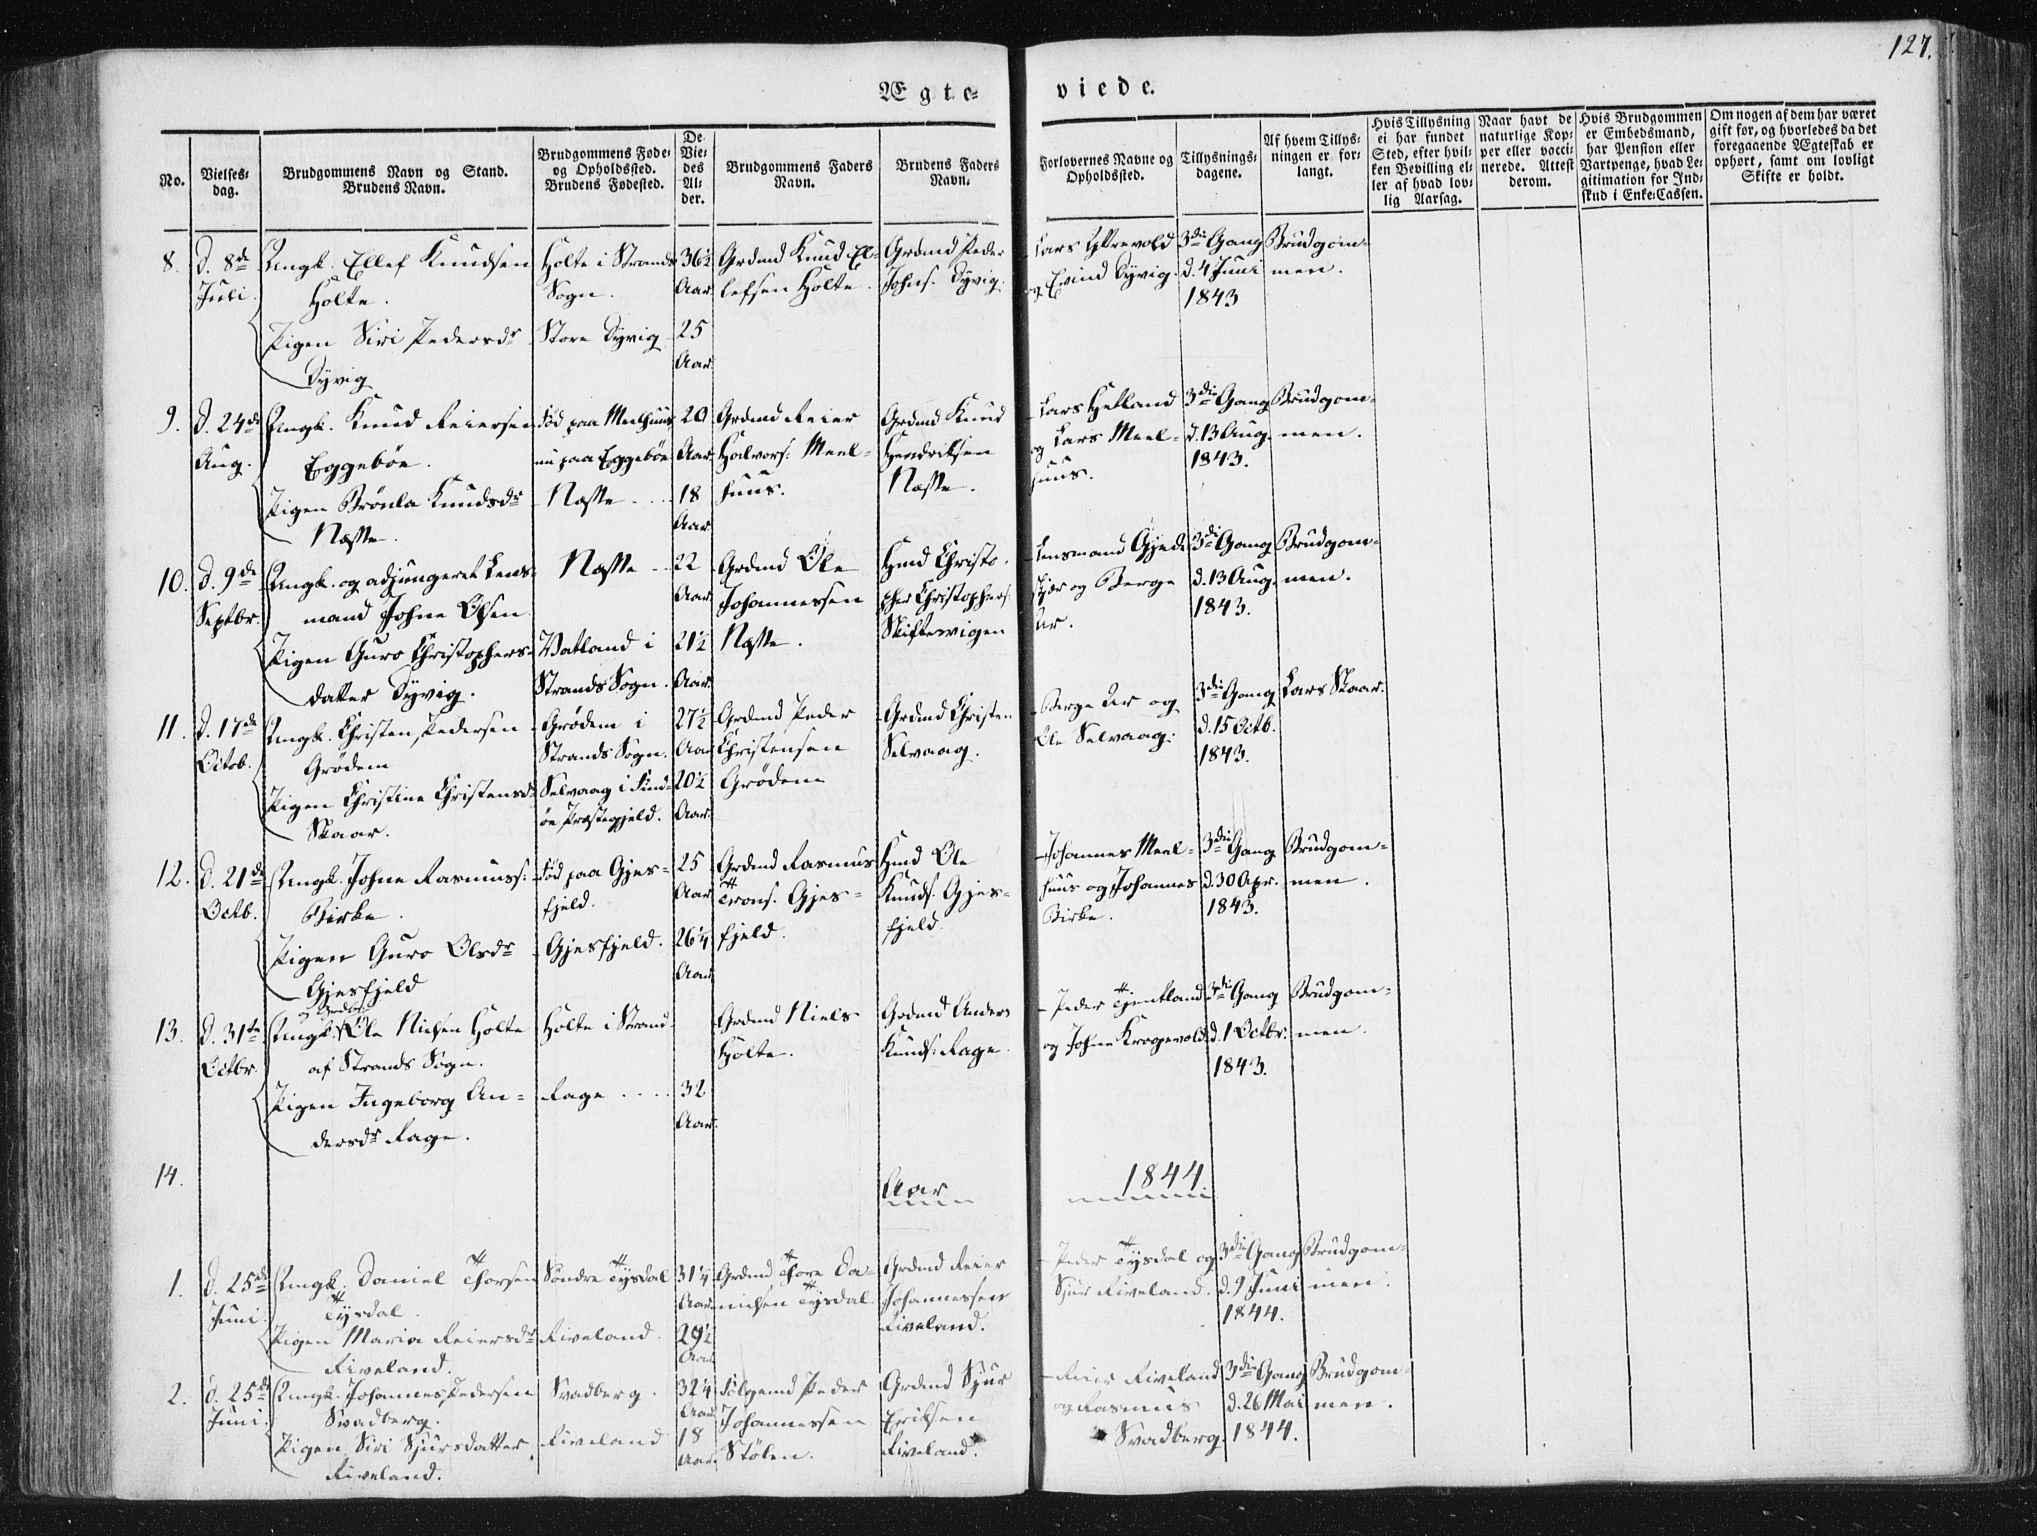 127.
Ægte=
viede.
No.
Vielses=
dag.
Brudgommens Navn og Stand.
Brudens Navn.
Brudgommens Føde=
og Opholdssted.
Brudens Fødested.
De
Vie=
des
Al=
der.
Brudgommens Faders
Navn.
Brudens Faders
Navn.
Forlovernes Navne og
Opholdssted.
Tillysnings=
dagene.
Af hvem Tillys=
ningen er for=
langt.
Hvis Tillysning
ei har fundet
Sted, efter hvil=
ken Bevilling el=
ler af hvad lov=
lig Aarsag.
Naar havt de
naturlige Kop=
per eller vacci=
nerede. Attest
derom.
Hvis Brudgommen
er Embedsmand,
har Pension eller
Vartpenge, hvad Le=
gitimation for Ind=
skud i Enke=Cassen.
Om nogen af dem har været
gift før, og hvorledes da det
foregaaende Ægteskab er
ophørt, samt om lovligt
Skifte er holdt.
8.
d. 8de
Juli.
Ungk. Ellef Knudsen
Holte.
Pigen Siri Pedersdr
Dyvig
Holte i Strands
Sogn.
Store Dyvig
36½
Aar.
25
Aar.
Grdmd Knud El=
lefsen Holte.
Grdmd Peder
Johns. Dyvig.
Lars Yttrevold
og Eivind Dyvig.
3die Gang
d. 4 Juni
1843
Brudgom=
men.
9.
d. 24de
Aug.
Ungk. Knud Reiersen
Eggebøe.
Pigen Brønla Knudsdr
Næsse.
Fød paa Meelhuus
nu paa Eggebøe
Næsse
20
Aar.
18
Aar.
Grdmd Reier
Halvors. Meel=
huus.
Grdmd Knud
Hendriksen
Næsse.
Lars Helland
og Lars Meel=
huus.
3die Gang
d. 13 Aug.
1843.
Brudgom=
men.
10.
d. 9de
Septbr.
Ungk. og adjungeret Lens=
mand Johne Olsen
Pigen Guro Christophers=
datter Dyvig.
Næsse
Vatland i
Strands Sogn.
22
Aar.
21½
Aar.
Grdmd Ole
Johannessen
Næsse.
Hmd Christo=
pher Christophers.
Skiftesvigen
Lensmand Gjede
og Berge
Ur.
3die Gang
d. 13 Aug.
1843.
Brudgom=
men.
11.
d. 17de
Octob.
Ungk. Christen Pedersen
Grødem
Pigen Christine Christensdr
Skaar.
Grødem i
Strands Sogn.
Selvaag i Find=
øe Præstegjeld.
27½
Aar
20½
Aar.
Grdmd Peder
Christensen
Grødem
Grdmd Christen
Selvaag.
Berge Ur og
Ole Selvaag.
3die Gang
d. 15 Octb.
1843.
Lars Skaar.
12.
d. 21de
Octb.
Ungk. Johne Rasmuss.
Birke.
Pigen Guro Olsdr
Gjesfjeld
Fød paa Gjes=
fjeld.
Gjesfjeld.
25
Aar
26¼
Aar.
Grdmd Rasmus
Trons. Gjes=
fjeld.
Hmd Ole
Knuds. Gjes=
fjeld.
Johannes Meel=
huus og Johannes
Birke.
3die Gang
d. 30 Apr.
1843.
Brudgom=
men.
13.
d. 31te
Octbr.
Ungk. Ole Nielsen Holte
af Strands Sogn.
Pigen Ingeborg An=
dersdr Rage.
Holte i Strand
Rage
32
Aar.
Grdmd Niels
Holte.
Grdmd Anders
Knuds. Rage.
Peder Tjentland
og Johne Krogevold
3die Gang
d. 1 Octbr.
1843.
Brudgom=
men.
14.
Aar
1844
1.
d. 25de
Juni.
Ungk. Daniel Thorsen
Tysdal.
Pigen Maria Reiersdr
Riveland.
Søndre Tysdal
Riveland.
31¼
Aar
29½
Aar
Grdmd Thore Da=
nielsen Tysdal
Grdmd Reier
Johannessen
Riveland.
Peder Tysdal og
Sjur Riveland.
3die Gang
d. 9 Juni
1844.
Brudgom=
men.
2.
d. 25de
Juni.
Ungk. Johannes Pedersen
Svadberg.
Pigen Siri Sjursdatter
Riveland.
Svadberg.
Riveland
32¼
Aar
18
Aar.
Peder
Johannessen
Stølen.
Grdmd Sjur
Eriksen
Riveland.
Reier Riveland
og Rasmus
Svadberg.
3die Gang
d. 26 Mai
1844.
Brudgom=
men.